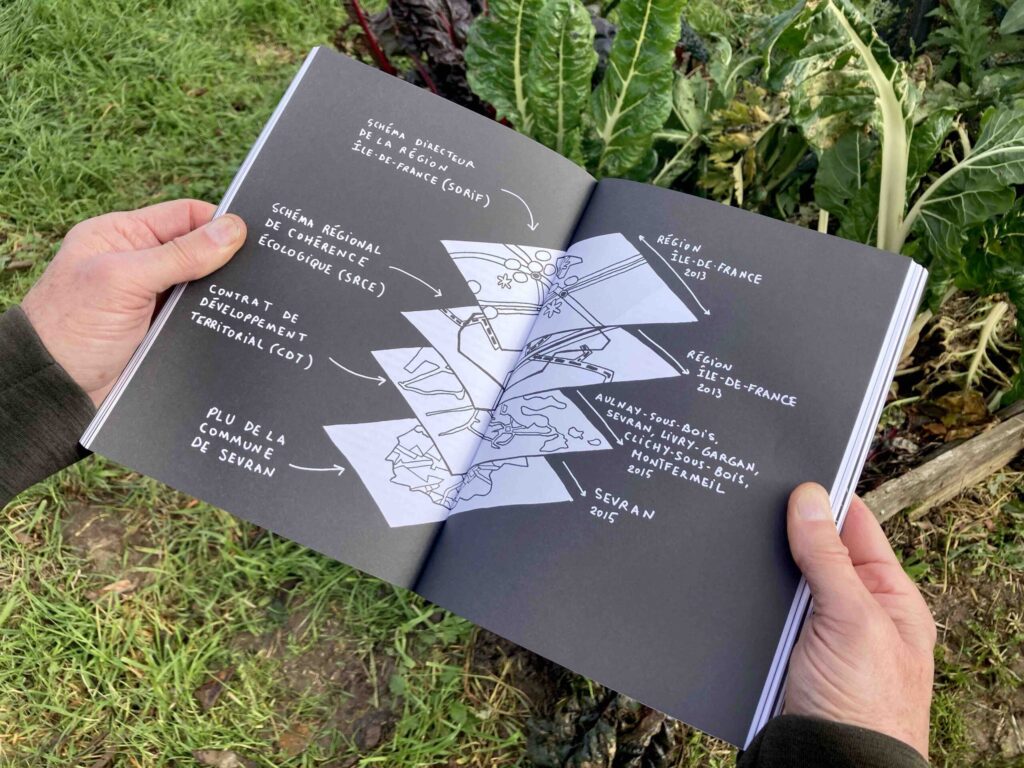 SCHÉMA DIRECTEUR
DE LA RÉGION
ÎLE-DE-FRANCE (SDRiF)
SCHÉMA RÉGIONAL
DE COHÉRENCE
ÉCOLOGIQUE (SRCE)
CONTRAT DE
DÉVELOPPEMENT
TERRITORIAL (CDT)
PLU DE LA
COMMUNE
DE SEVRAN
RÉGION
ÎLE-DE-FRANCE
2013
RÉGION
ÎLE-DE-FRANCE
2013
AULNAY-SOUS-BOiS,
SEVRAN, LiVRY-GARGAN,
CLiCHY-SOUS-BOiS,
MONTFERMEiL
2015
SEVRAN
2015